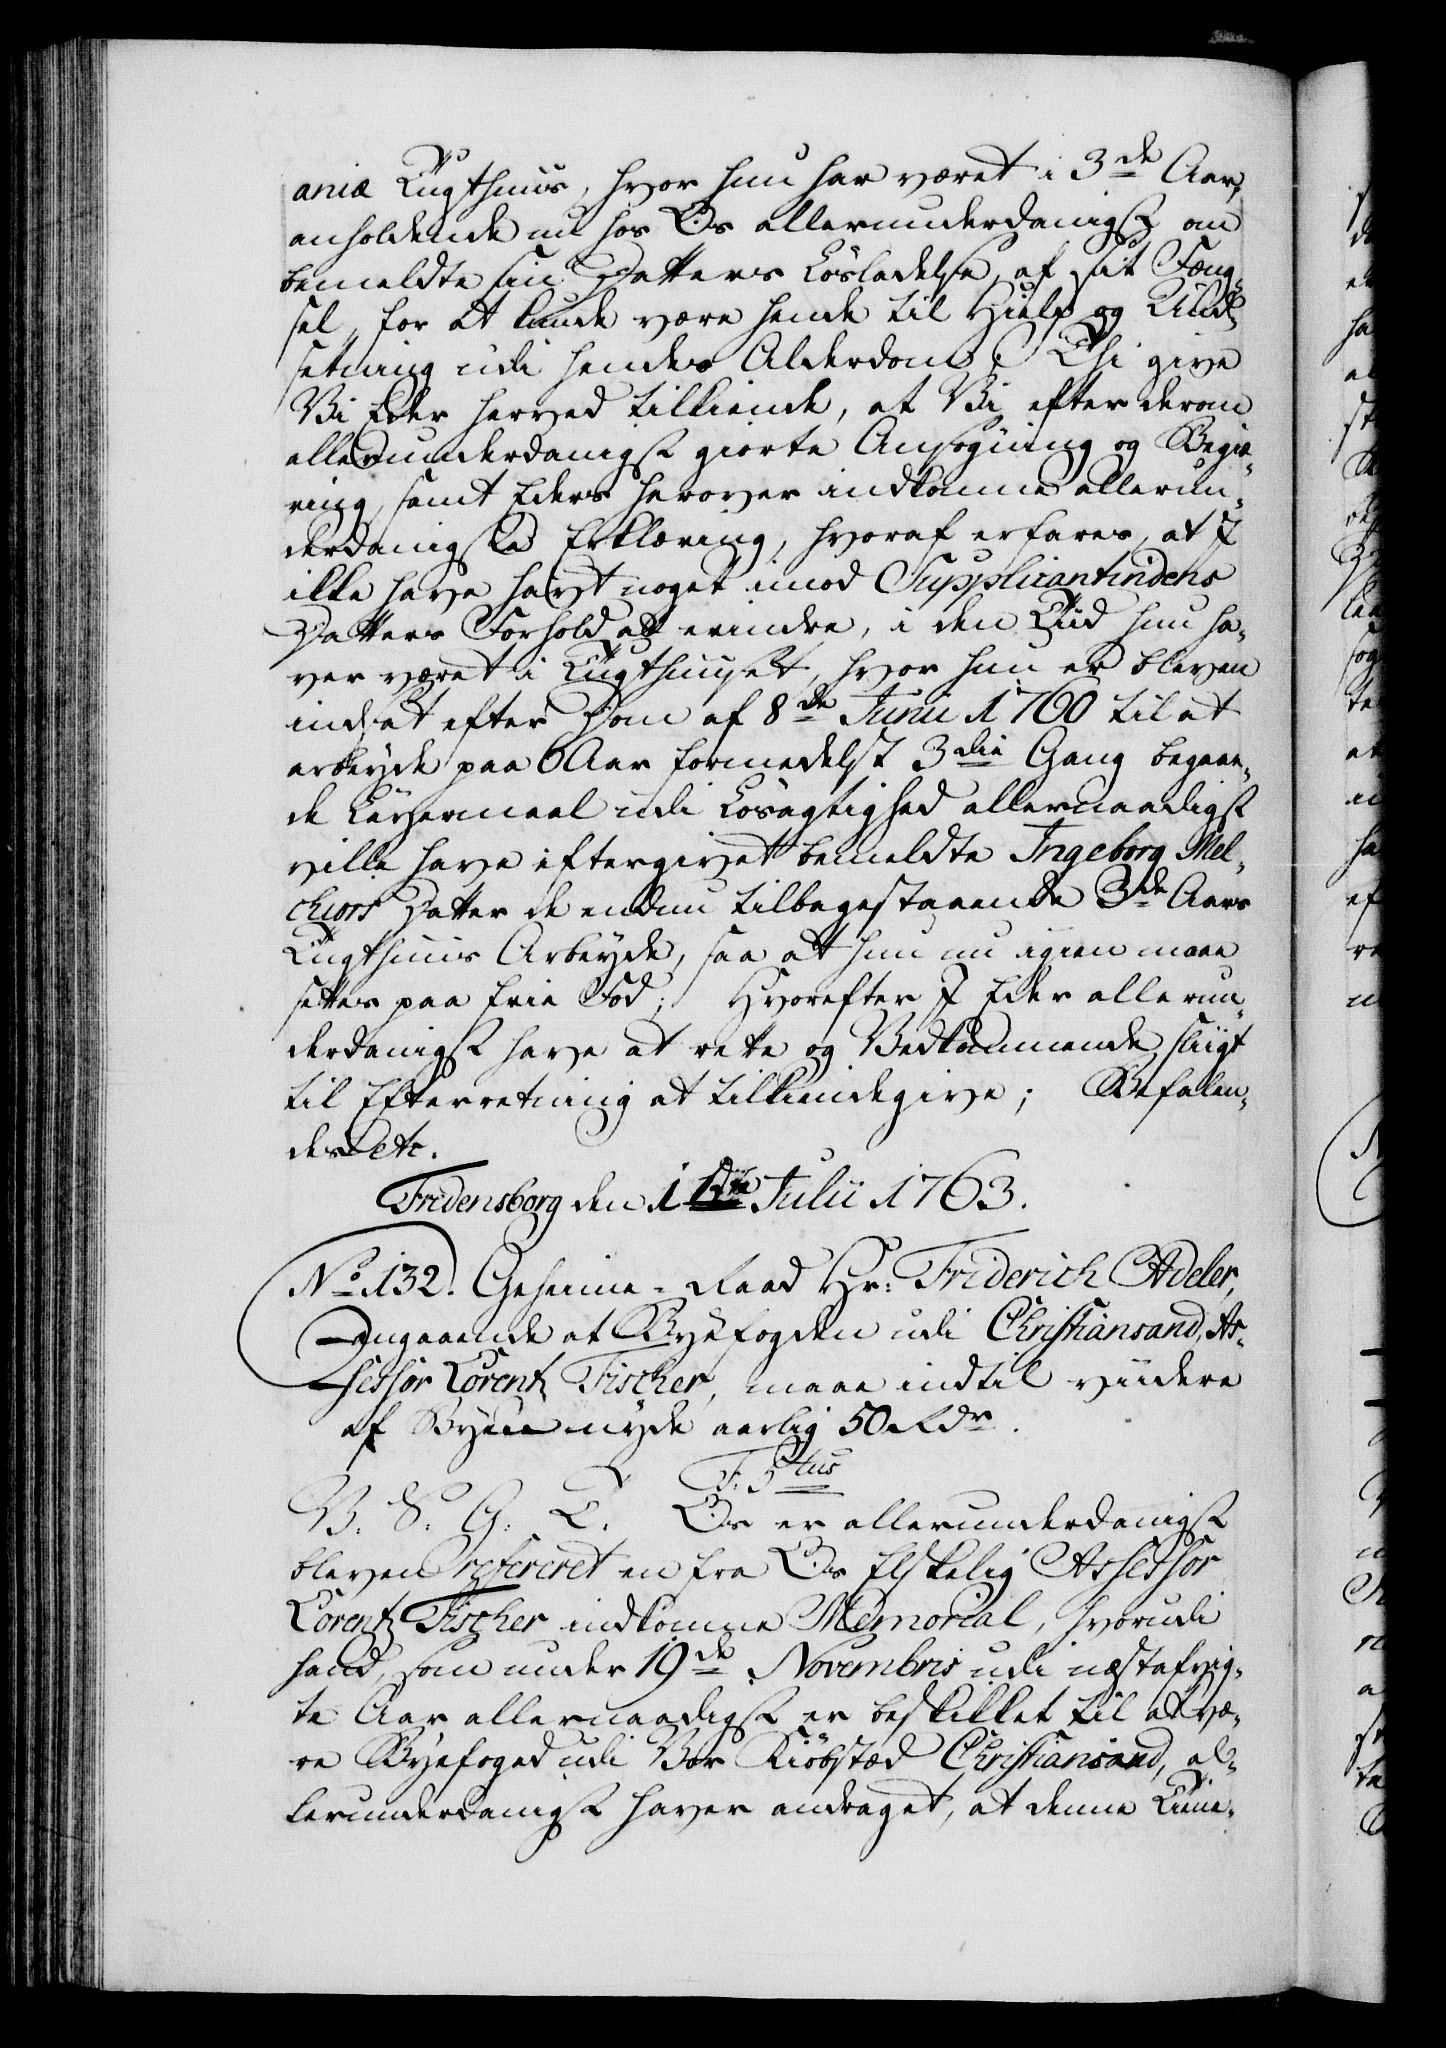 aniæ Tugthuus, hvor hun har været i 3de Aar,
anholdende nu hos Os allerunderdanigst om
bemeldte sin Datters Løsladelse, af sit Fæng¬
sel, for at kunde være hende til Hielp og Und¬
sætning udi hendes Alderdom; Thi give
Vi Eder herved tilkiende, at Vi efter derom
allerunderdanigst giorte Ansøgning og Begiæ¬
ring, samt Eders herover indkomne allerun¬
derdanigste Erklæring, hvoraf erfares, at I
ikke have havt noget imod Supplicantindens
Datters Forhold at erindre, i den Tiid hun ha¬
ver været i Tugthuuset, hvor hun er bleven
indsat efter Dom af 8de Junii 1760 til at
arbeyde paa 6 Aar formedelst 3die Gang begaae¬
de Leyermaal udi Løsagtighed allernaadigst
ville have eftergivet bemeldte Ingeborg Mel¬
chiors Datter de endnu tilbagestaaende 3de Aars
Tugthuus Arbeyde, saa at hun nu igien maae
settes paa frie Fod; Hvorefter I Eder allerun¬
derdanigst have at rette og Vedkommende sligt
til Efterretning at tilkiendegive; Befalen¬
des etc.
Fridensborg den 11te Julii 1763.
No 132. Geheime-Raad Hr: Friderich Adeler,
Angaaende at Byefogden udi Christiansand, As¬
sessor Lorentz Fischer, maae indtil viidere
af Byen nyde aarlig 50 Rdr.
F: 5tus
V. S. G. T. Os er allerunderdanigst
bleven refereret en fra Os Elskelig Assessor
Lorentz Fischer indkomne Memorial, hvorudi
hand, som under 19de Novembris udi næstafvig¬
te Aar allernaadigst er beskikket til at væ¬
re Byefoged udi Vor Kiöbstæd Christiansand, al¬
lerunderdanigst haver andraget, at denne Tiene¬